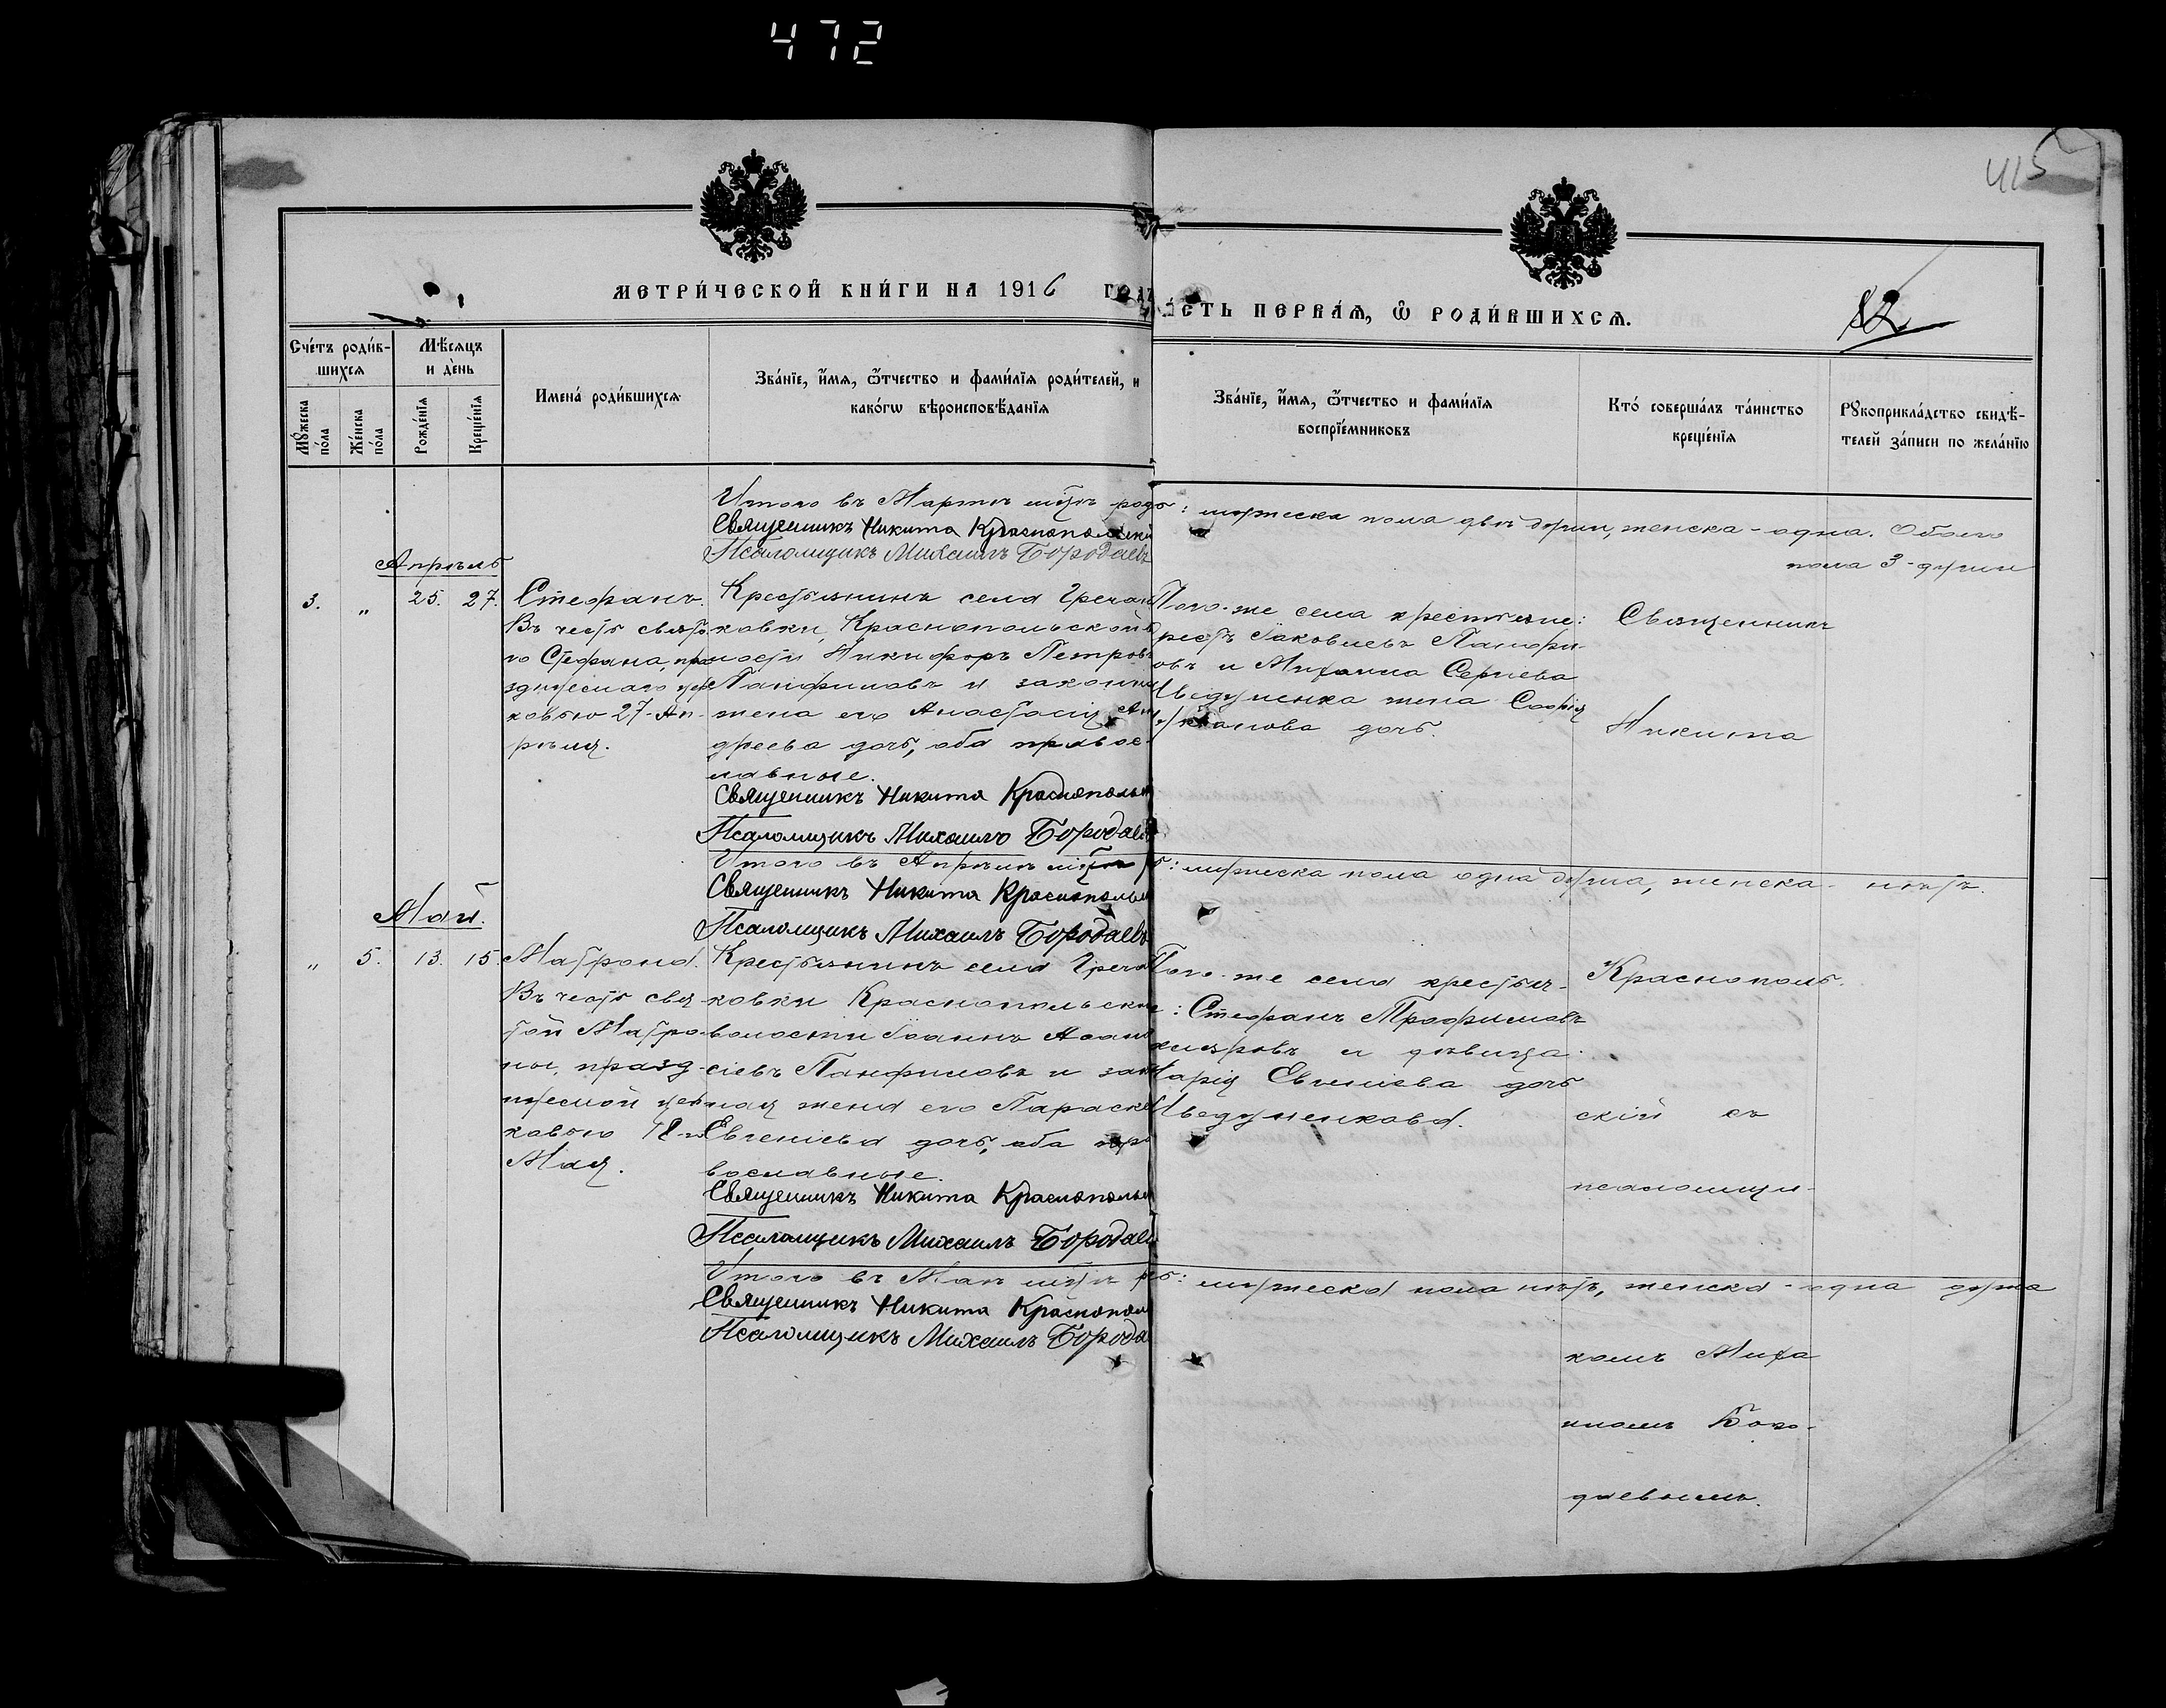 472
415
МЕТРИ́ЧЕСКОЙ КНИ́ГИ НА 1916 ГОДЪ
СТЬ ПЕРВА́Я, Ѡ҆ РОДИ́ВШИХСЯ.
82
Сче́тъ роди́в-
шихся
Мꙋ́жеска по́ла
Же́нска по́ла
Мѣ́сяцъ
и де́нь
Рожде́нія
Креще́нія
Имена́ роди́вшихся
Зва́ніе, и҆́мя, ѻ҆́тчество и фами́лія роди́телей, и
како́гѡ вѣроисповѣ́данія
Зва́ніе, и҆́мя, ѻ҆́тчество и фами́лія
воспріе́мниковъ
Кто́ соверша́лъ та́инство
креще́нія
Рꙋкоприкла́дство свидѣ́-
телей за́писи по жела́нію
Итого въ Мартѣ мцѣ род: мужеска пола двѣ души, женска - одна. Обоего
пола 3 - души
Священникъ Никита Краснопольскій
Псаломщикъ Михаилъ Бородаевъ
Апрѣль
3. „ 25. 27.
Стефанъ.
Въ честь свято-
го Стефана, пра-
зднуемаго цер-
ковью 27-Ап-
рѣля.
Крестьянинъ села Гречан
ковки, Краснопольской в
лости Никифоръ Петровъ
Панфиловъ и законна
жена его Анастасія Ан
дреева дочь, оба правос-
лавные.
Священникъ Никита Краснополь
Псаломщикъ Михаилъ Бородаев
Того-же села крестьяне:
Іаковлевъ Панфи-
овъ и Михаила Сергіева
Шведуненка жена Софія
дочь.
Священникъ
Никита
Итого въ Апрѣлѣ мцѣ р: мужеска пола одна душа, женска - нѣтъ.
Священникъ Никита Краснополь
Псаломщикъ Михаилъ Бородаевъ
Май.
„ 5. 13. 15.
Матрона.
Въ честь свя-
той Матро-
ны, празд-
нуемой цер-
ковью 18-го
Мая.
Крестьянинъ села Гречан
ковки Краснопольской
волости Іоаннъ Аѳана
сіевъ Панфиловъ и закон
ная жена его Параске
Евгеніева дочь, оба пра
вославные.
Священникъ Никита Краснополь
Псаломщикъ Михаилъ Бородаев
Того-же села крестья-
: Стефанъ Трофимовъ
и дѣвица
Марія Евгеніева дочь
Шведуненкова.
Краснополь-
скій съ
псаломщи-
Итого въ Маѣ мцѣ р: мужеска пола нѣтъ, женска - одна душа
Священникъ Никита Краснопол
Псаломщикъ Михаилъ Борода
комъ Миха
иломъ Боро-
даевымъ.